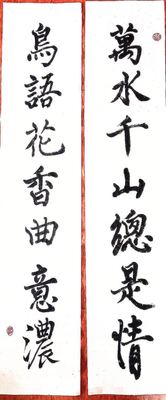 萬水千山總是情
鳥語花香曲意濃